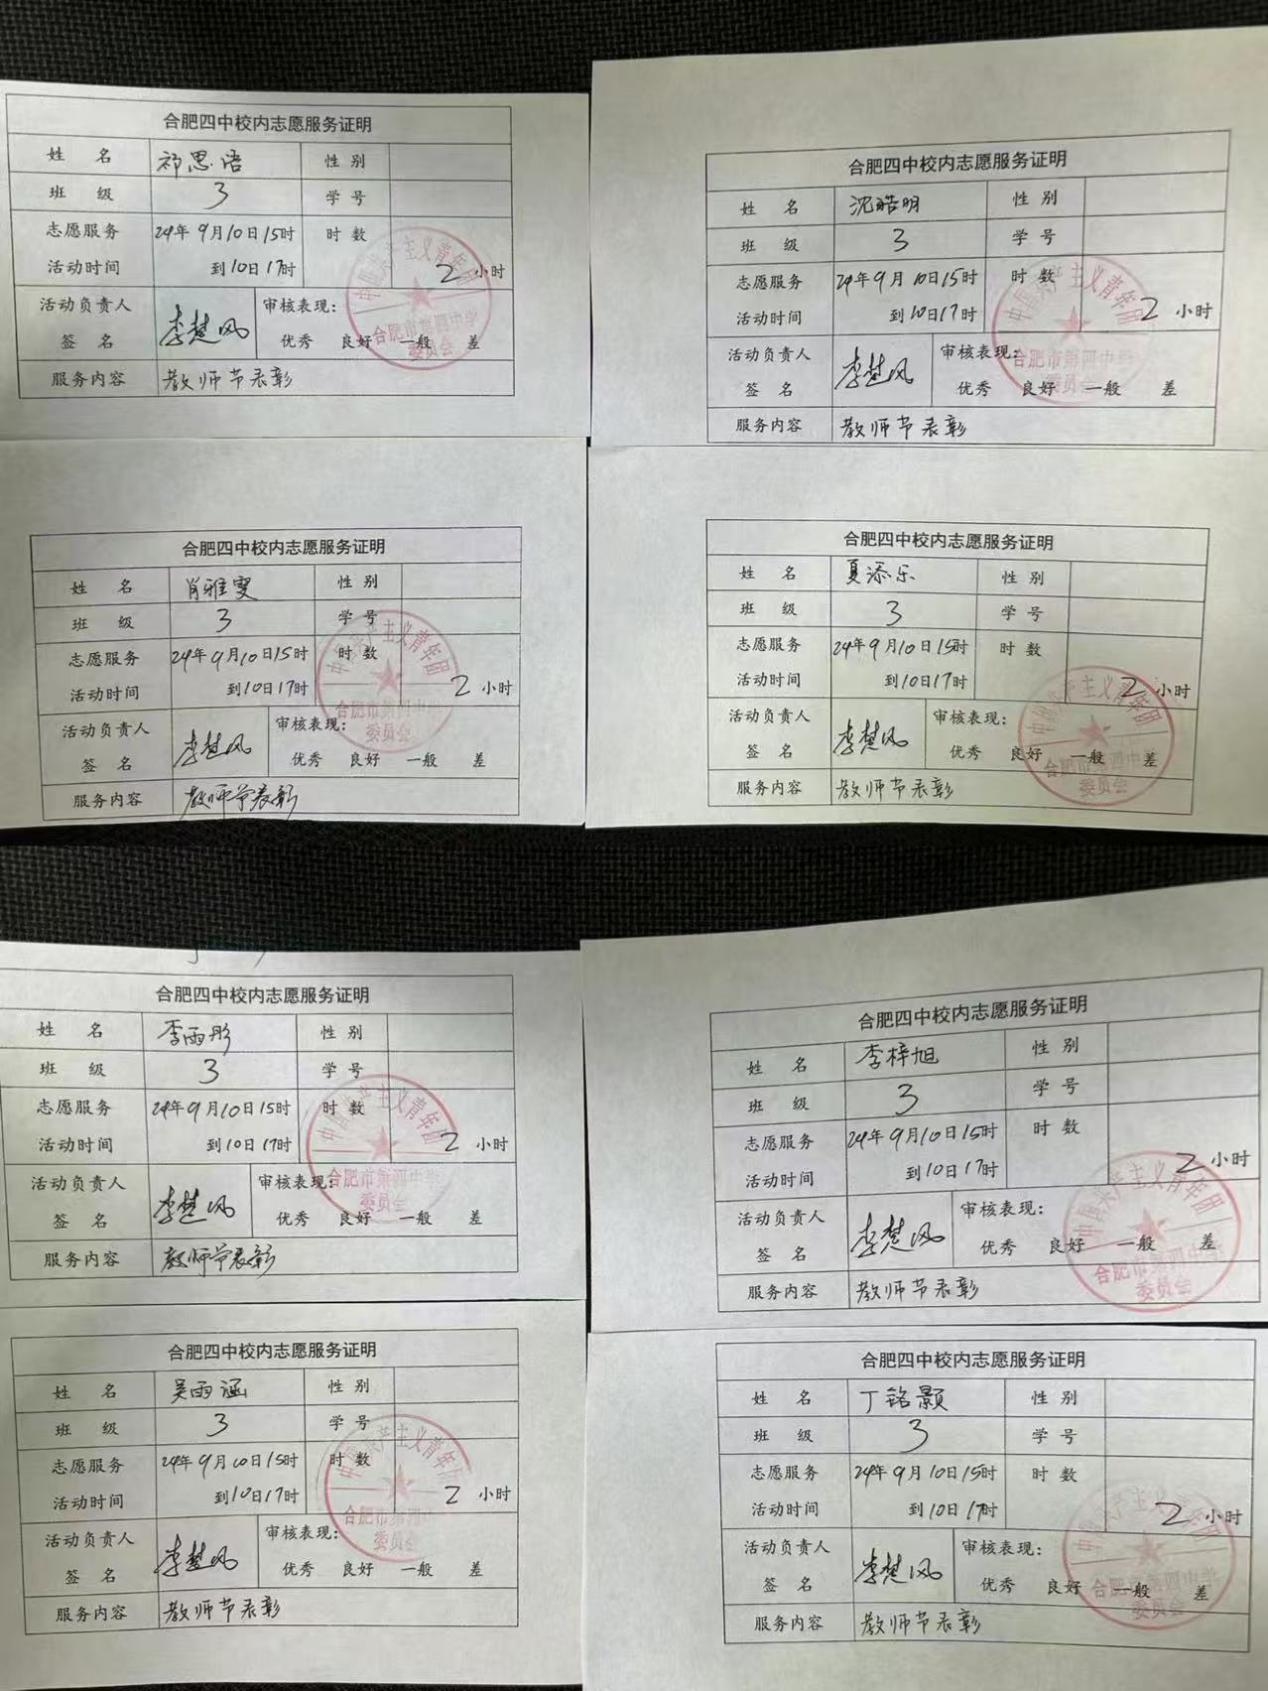 合肥四中校内志愿服务证明
姓 名 祁思语 性 别
班 级 3 学 号
志愿服务 24年9月10日15时 时 数
活动时间 到10日17时 2小时
活动负责人 李楚风 审核表现:
签 名 优秀 良好 一般 差
服务内容 教师节表彰
中国共产主义青年团
合肥市第四中学
委员会
合肥四中校内志愿服务证明
姓 名 沈皓明 性 别
班 级 3 学 号
志愿服务 24年9月10日15时 时 数
活动时间 到10日17时 2小时
活动负责人 李楚风 审核表现:
签 名 优秀 良好 一般 差
服务内容 教师节表彰
中国共产主义青年团
合肥市第四中学
委员会
合肥四中校内志愿服务证明
姓 名 肖雅雯 性 别
班 级 3 学 号
志愿服务 24年9月10日15时 时 数
活动时间 到10日17时 2小时
活动负责人 李楚风 审核表现:
签 名 优秀 良好 一般 差
服务内容 教师节表彰
中国共产主义青年团
合肥市第四中学
委员会
合肥四中校内志愿服务证明
姓 名 夏添乐 性 别
班 级 3 学 号
志愿服务 24年9月10日15时 时 数
活动时间 到10日17时 2小时
活动负责人 李楚风 审核表现:
签 名 优秀 良好 一般 差
服务内容 教师节表彰
中国共产主义青年团
合肥市第四中学
委员会
合肥四中校内志愿服务证明
姓 名 李雨彤 性 别
班 级 3 学 号
志愿服务 24年9月10日15时 时 数
活动时间 到10日17时 2小时
活动负责人 李楚风 审核表现:
签 名 优秀 良好 一般 差
服务内容 教师节表彰
中国共产主义青年团
合肥市第四中学
委员会
合肥四中校内志愿服务证明
姓 名 李梓旭 性 别
班 级 3 学 号
志愿服务 24年9月10日15时 时 数
活动时间 到10日17时 2小时
活动负责人 李楚风 审核表现:
签 名 优秀 良好 一般 差
服务内容 教师节表彰
中国共产主义青年团
合肥市第四中学
委员会
合肥四中校内志愿服务证明
姓 名 吴雨涵 性 别
班 级 3 学 号
志愿服务 24年9月10日15时 时 数
活动时间 到10日17时 2小时
活动负责人 李楚风 审核表现:
签 名 优秀 良好 一般 差
服务内容 教师节表彰
中国共产主义青年团
合肥市第四中学
委员会
合肥四中校内志愿服务证明
姓 名 丁铭颢 性 别
班 级 3 学 号
志愿服务 24年9月10日15时 时 数
活动时间 到10日17时 2小时
活动负责人 李楚风 审核表现:
签 名 优秀 良好 一般 差
服务内容 教师节表彰
中国共产主义青年团
合肥市第四中学
委员会